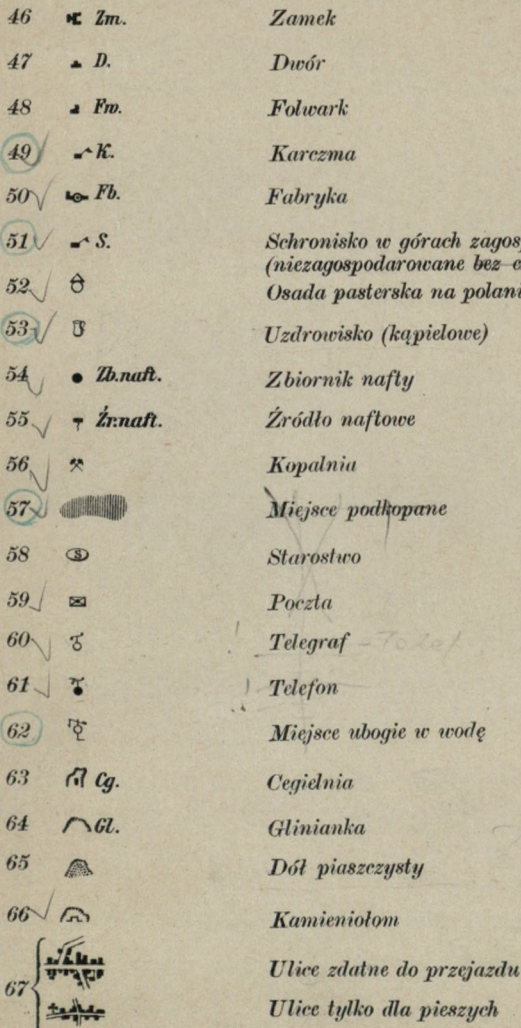 46 Zm. Zamek
47 D. Dwór
48 Fw. Folwark
49 K. Karczma
50 Fb. Fabryka
51 S. Schronisko w górach zagos
(niezagospodarowane bez c
52 Osada pasterska na polani
53 Uzdrowisko (kąpielowe)
54 Zb.naft. Zbiornik nafty
55 Źr.naft. Źródło naftowe
56 Kopalnia
57 Miejsce podkopane
58 S Starostwo
59 Poczta
60 Telegraf
61 Telefon
62 Miejsce ubogie w wodę
63 Cg. Cegielnia
64 Gl. Glinianka
65 Dół piaszczysty
66 Kamieniołom
67 Ulice zdatne do przejazdu
Ulice tylko dla pieszych